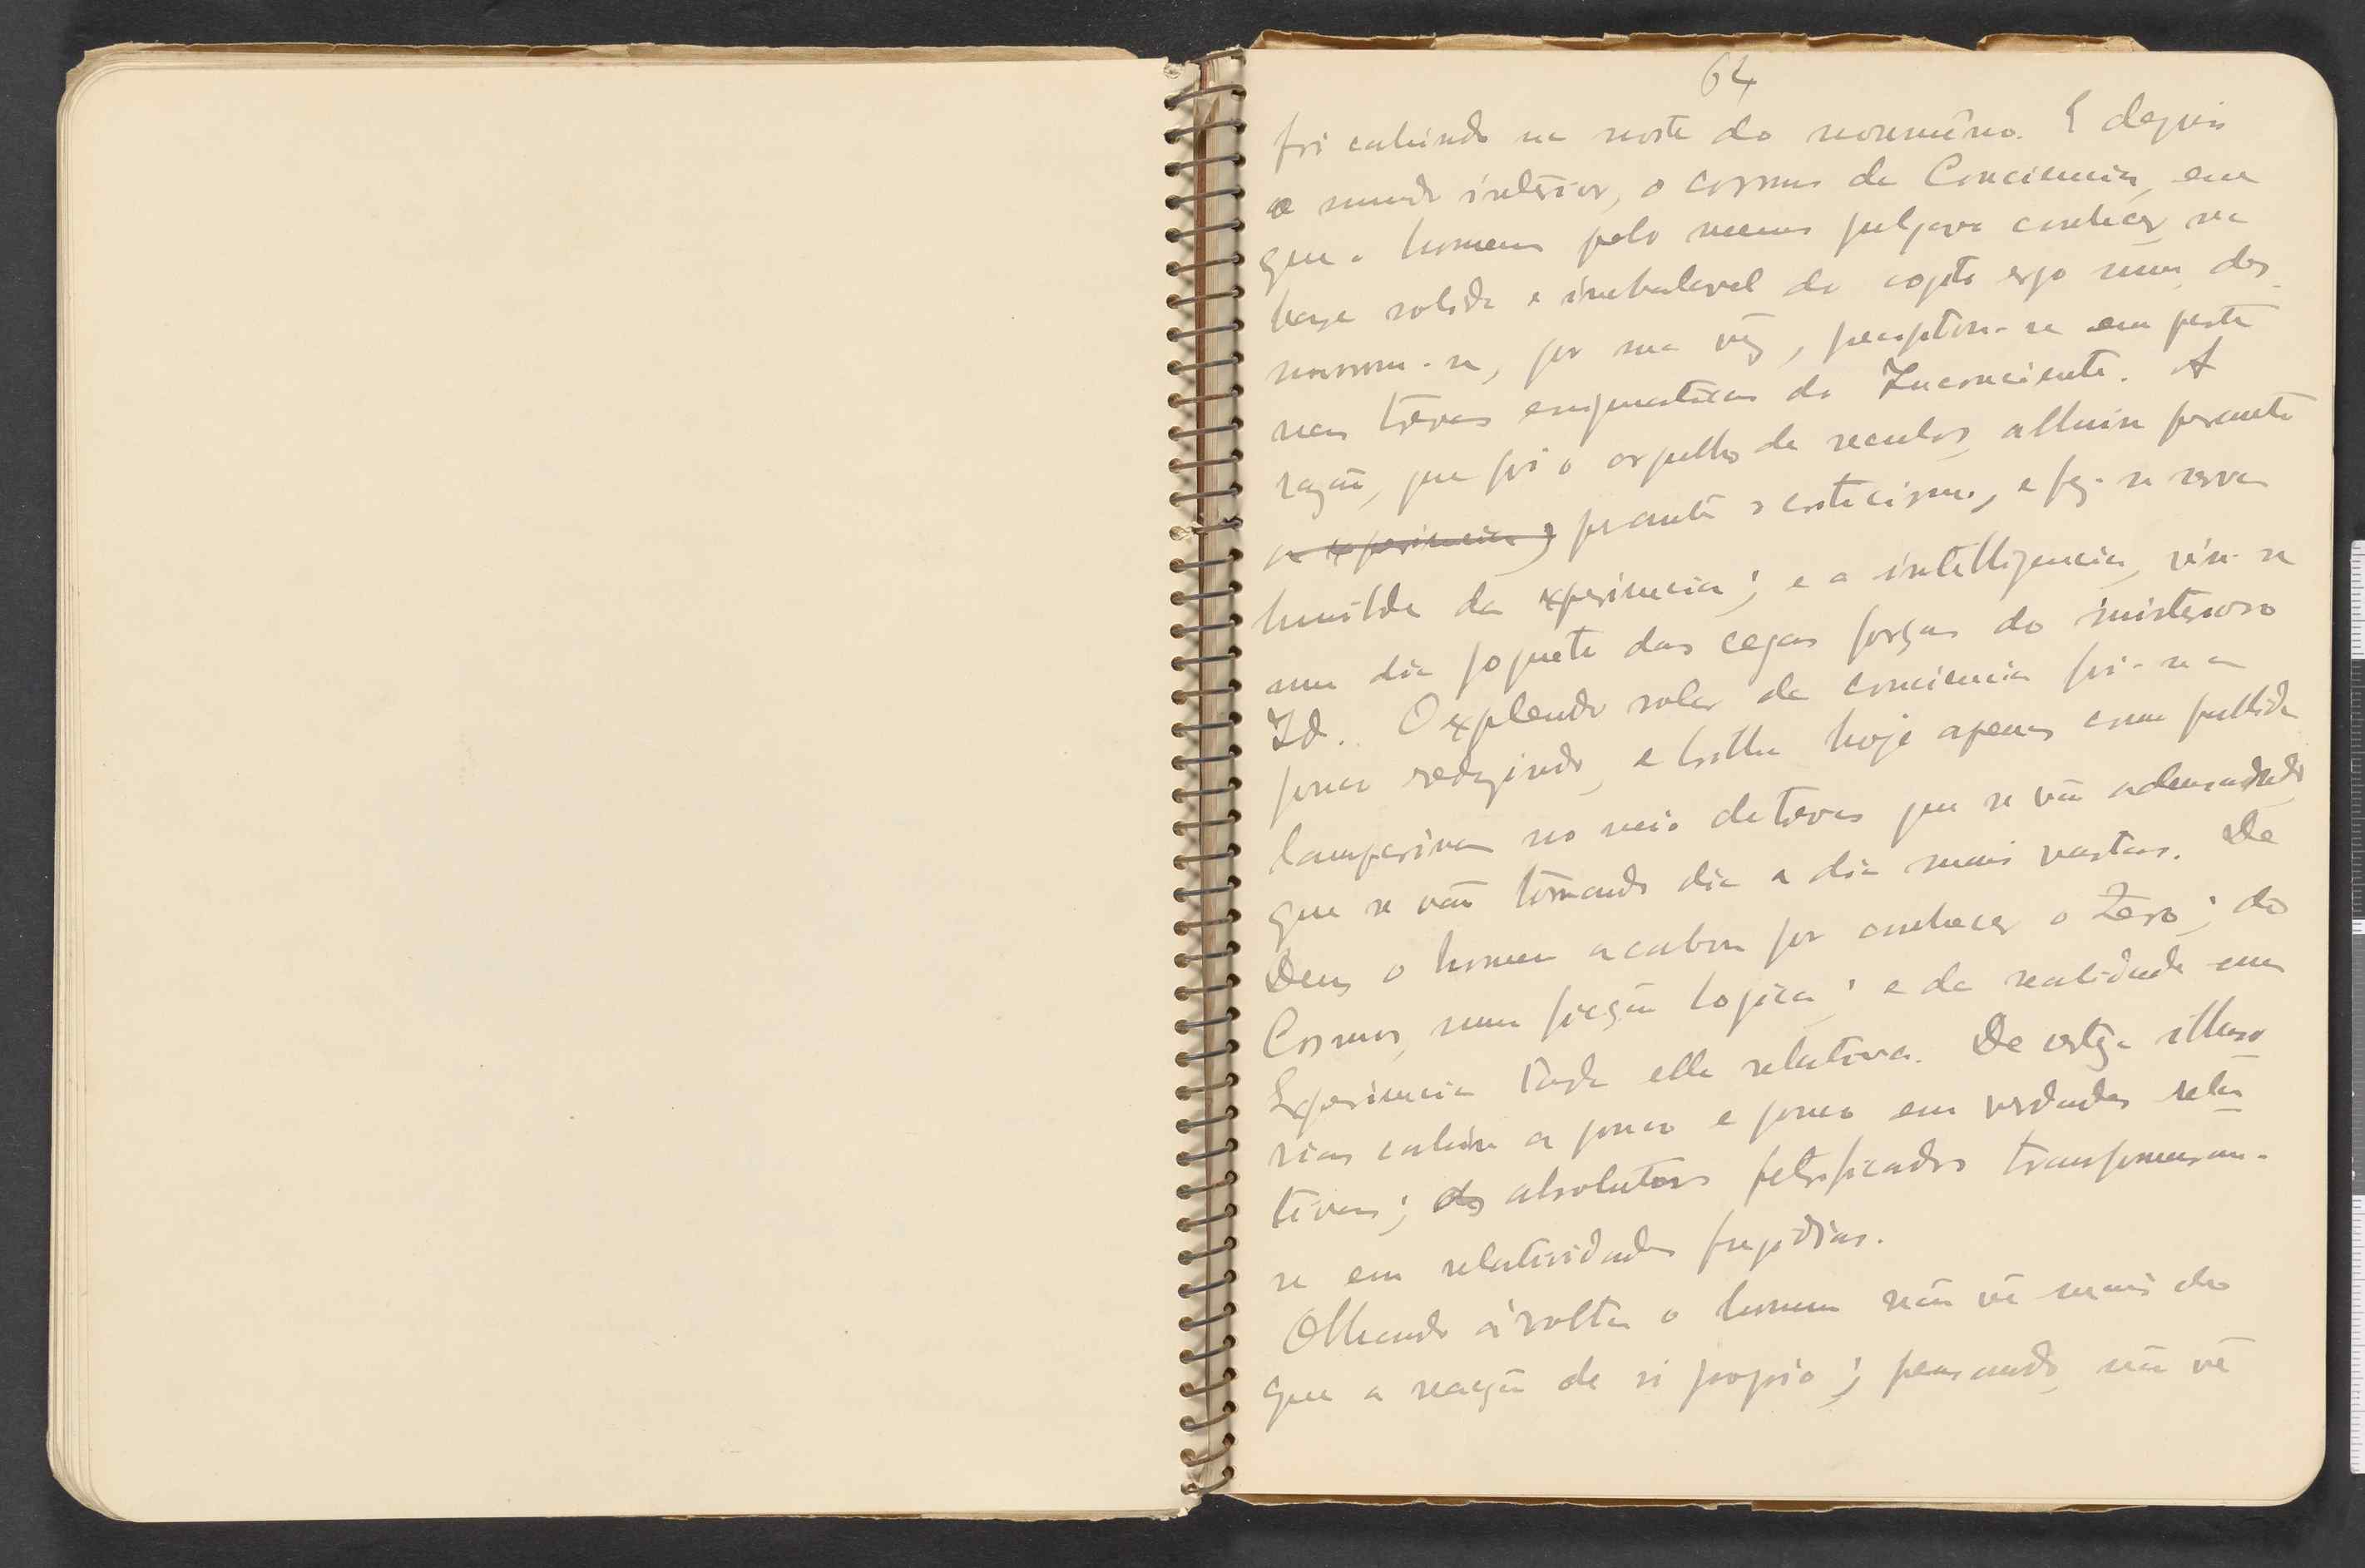 64
foi cahindo na noite do noumêno. E depois
o mundo intèrior, o cosmos da Conciencia, em
que o homem pelo menos julgava conhecer, na
base solida e inabalavel do cogito ergo sum, des-
moronou-se, por sua vêz, precipitou-se em parte
nas trevas enigmaticas do Inconciente. A
razão, que foi o orgulho de seculos, alluiu perante
a experiencia, perante o criticismo, e fez-se serva
humilde da experiencia; e a intelligencia, viu-se
um dia joguete das cegas forças do misterioso
Id. O explendor solar da conciencia foi-se a
pouco reduzindo, e brilha hoje apenas como pallida
lamparina no meio de trevas que se vão adensando,
que se vão tornando dia a dia mais vastas. De
Deus o homem acabou por conhecer o Zero; do
Cosmos, uma ficção logica; e da realidade uma
Experiencia toda ella relativa. De certeza illuso-
rias cahiu a pouco e pouco em verdades rela-
tivas; os absolutos petrificados transformaram-
se em relatividades fugidias.
Olhando à volta o homem não vê mais do
que a reacção de si proprio; pensando, não vê